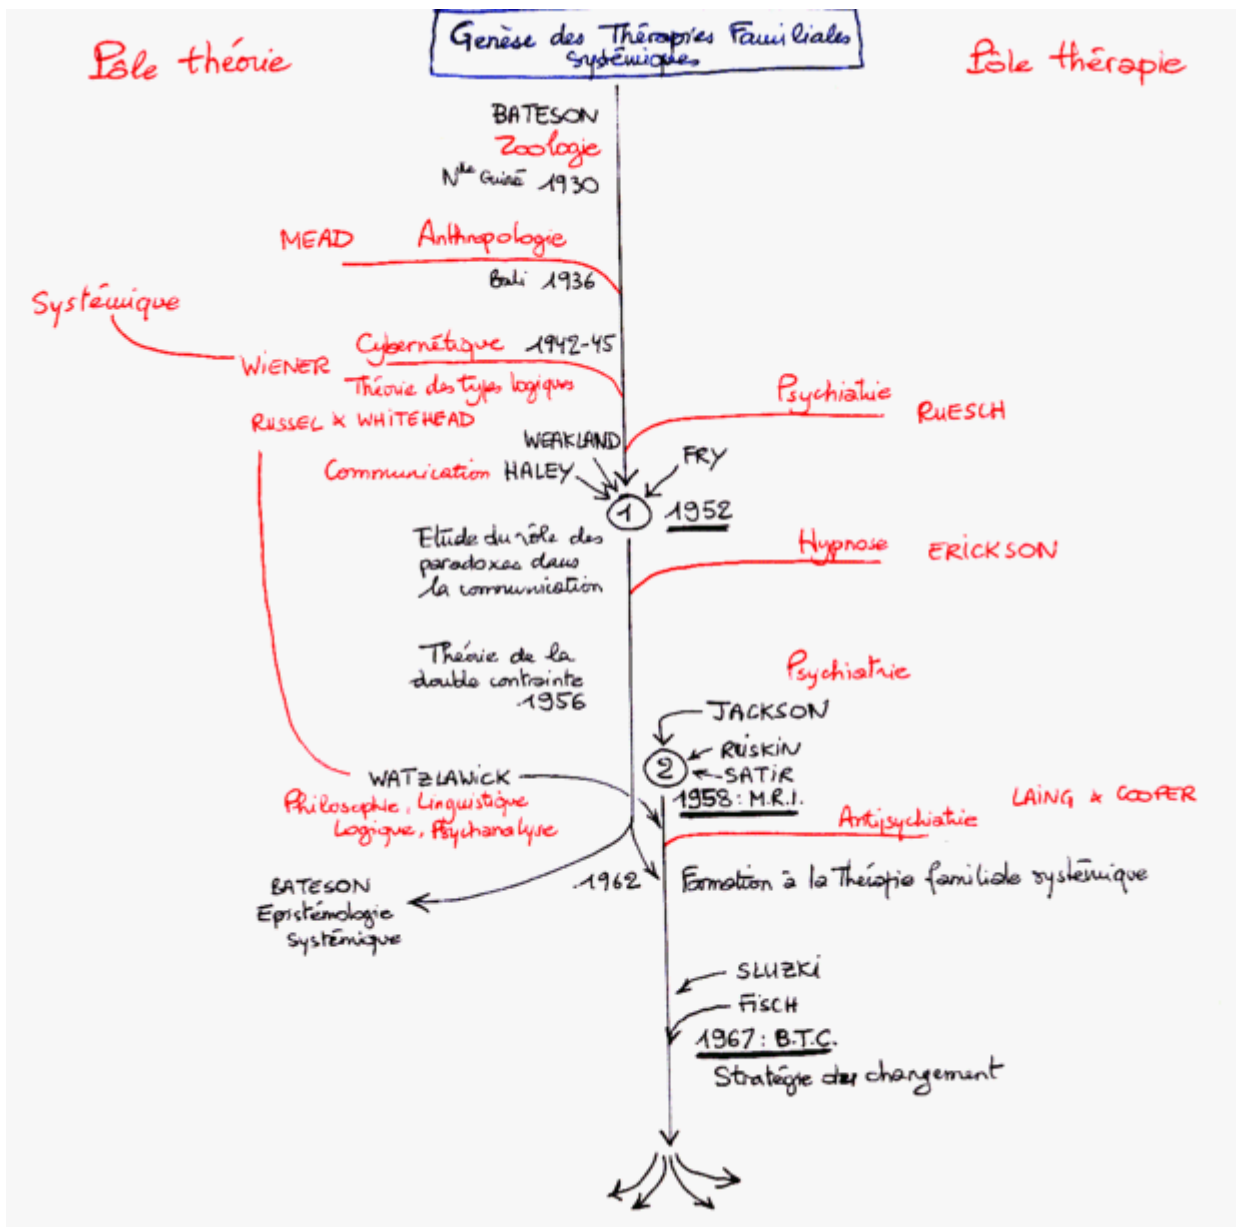 Genèse des Thérapies Familiales
Systémiques
Pôle théorie
Pôle thérapie
BATESON
Zoologie
Nlle Guinée 1930
MEAD Anthropologie
Bali 1936
Systémique
WIENER Cybernétique 1942-45
Théorie des types logiques
RUSSEL & WHITEHEAD
Psychiatrie
RUESCH
WEAKLAND
Communication HALEY
FRY
1 1952
Etude du rôle des
paradoxes dans
la communication
Hypnose ERICKSON
Théorie de la
double contrainte
1956
Psychiatrie
JACKSON
RUSKIN
2 SATIR
1958 : M.R.I.
WATZLAWICK
Philosophie, Linguistique
Logique, Psychanalyse
LAING & COOPER
Antipsychiatrie
1962
Formation à la Thérapie familiale systémique
BATESON
Epistémologie
Systémique
SLUZKI
FISCH
1967 : B.T.C.
Stratégie du changement